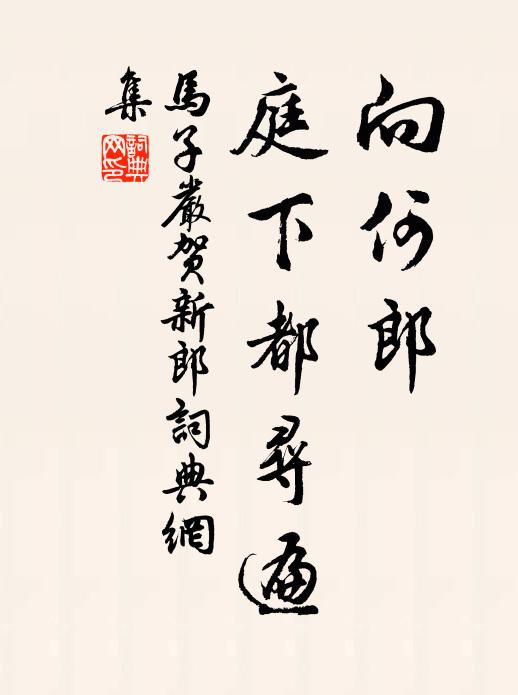 向何郎
庭下都尋遍
馬子嚴賀新郎詞典網
集
詞典
网印